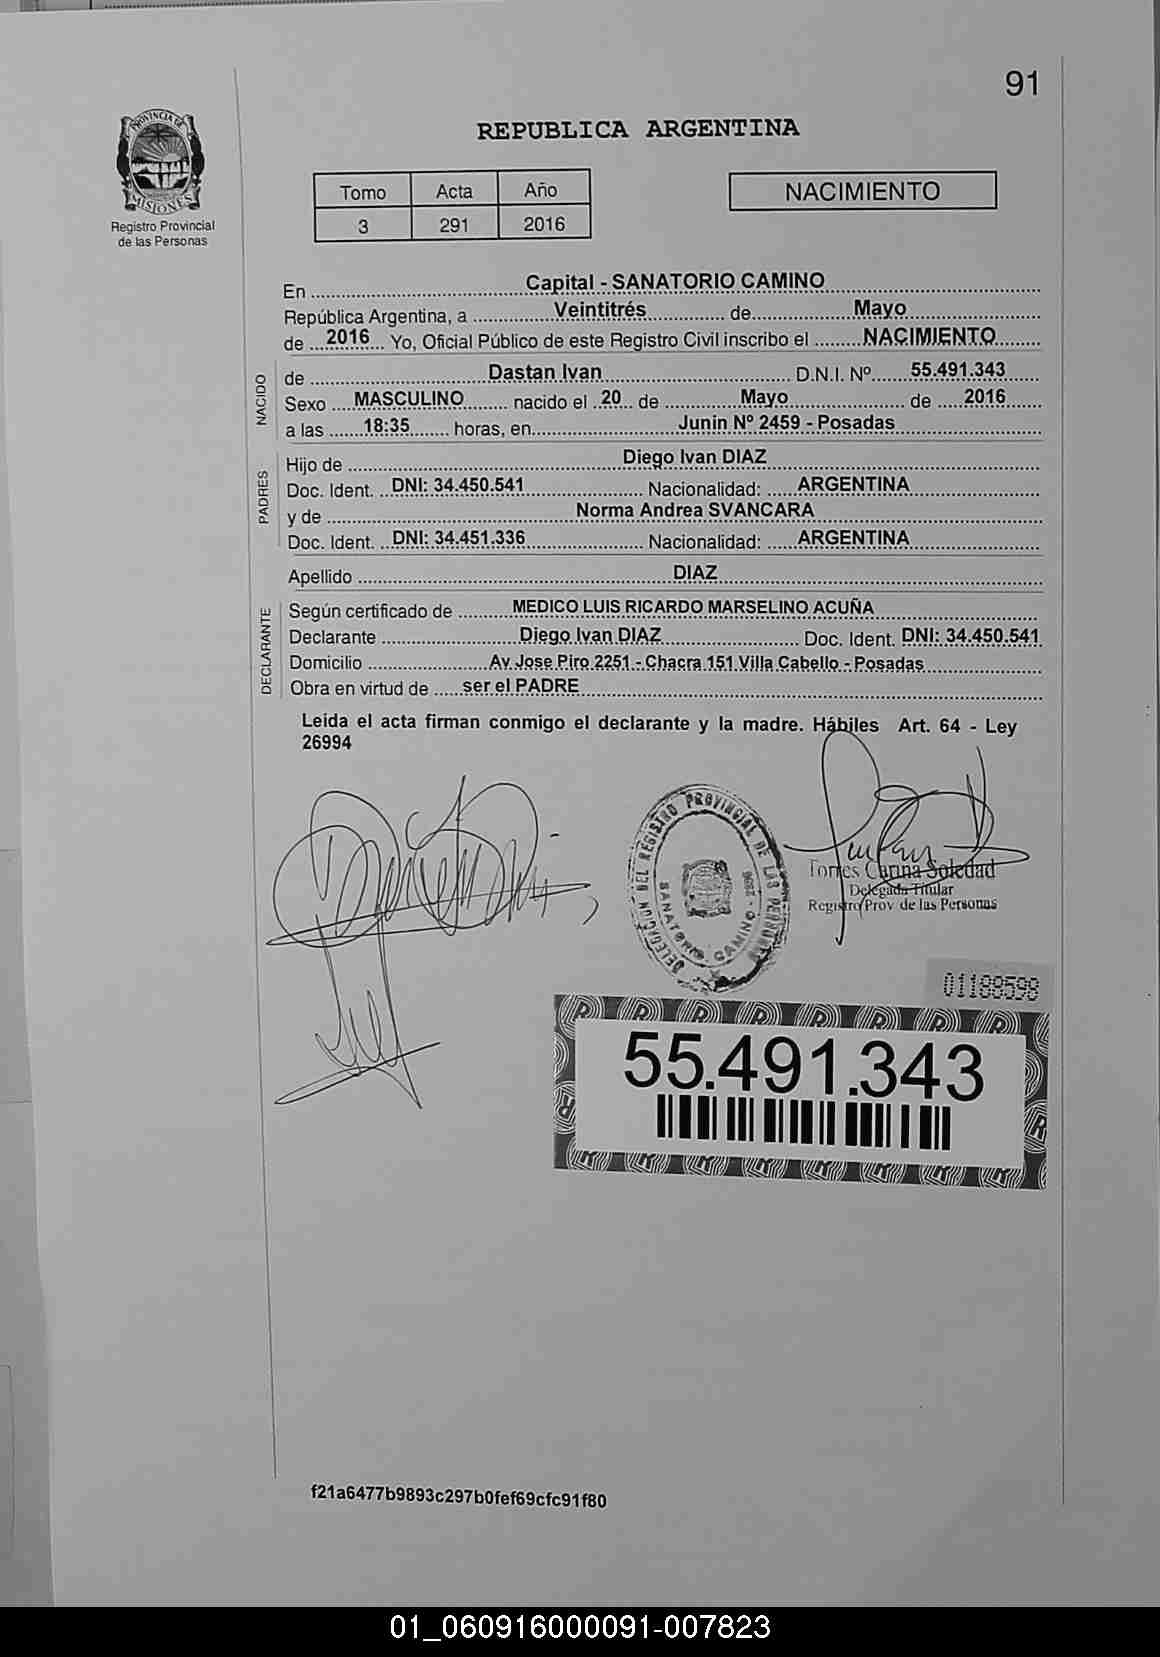 91
PROVINCIA DE
MISIONES
Registro Provincial
de las Personas
REPUBLICA ARGENTINA
Tomo Acta Año
3 291 2016
NACIMIENTO
En Capital - SANATORIO CAMINO
República Argentina, a Veintitrés de Mayo
de 2016 Yo, Oficial Público de este Registro Civil inscribo el NACIMIENTO
NACIDO
de Dastan Ivan D.N.I. Nº 55.491.343
Sexo MASCULINO nacido el 20 de Mayo de 2016
a las 18:35 horas, en Junin Nº 2459 - Posadas
PADRES
Hijo de Diego Ivan DIAZ
Doc. Ident. DNI: 34.450.541 Nacionalidad: ARGENTINA
y de Norma Andrea SVANCARA
Doc. Ident. DNI: 34.451.336 Nacionalidad: ARGENTINA
Apellido DIAZ
DECLARANTE
Según certificado de MEDICO LUIS RICARDO MARSELINO ACUÑA
Declarante Diego Ivan DIAZ Doc. Ident. DNI: 34.450.541
Domicilio Av Jose Piro 2251 - Chacra 151 Villa Cabello - Posadas
Obra en virtud de ser el PADRE
Leida el acta firman conmigo el declarante y la madre. Hábiles Art. 64 - Ley
26994
DELEGACIÓN DEL REGISTRO PROVINCIAL DE LAS PERSONAS
SANATORIO CAMINO
Torres Carina Soledad
Delegada Titular
Registro Prov de las Personas
01188598
55.491.343
f21a6477b9893c297b0fef69cfc91f80
01_060916000091-007823